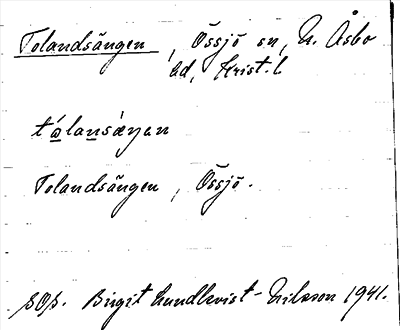 Tolandsängen, Össjö sn, N. Åsbo
hd, Krist. l
tálansæŋan
Tolandsängen, Össjö.
Birgit Lundkvist-Nilsson 1941.